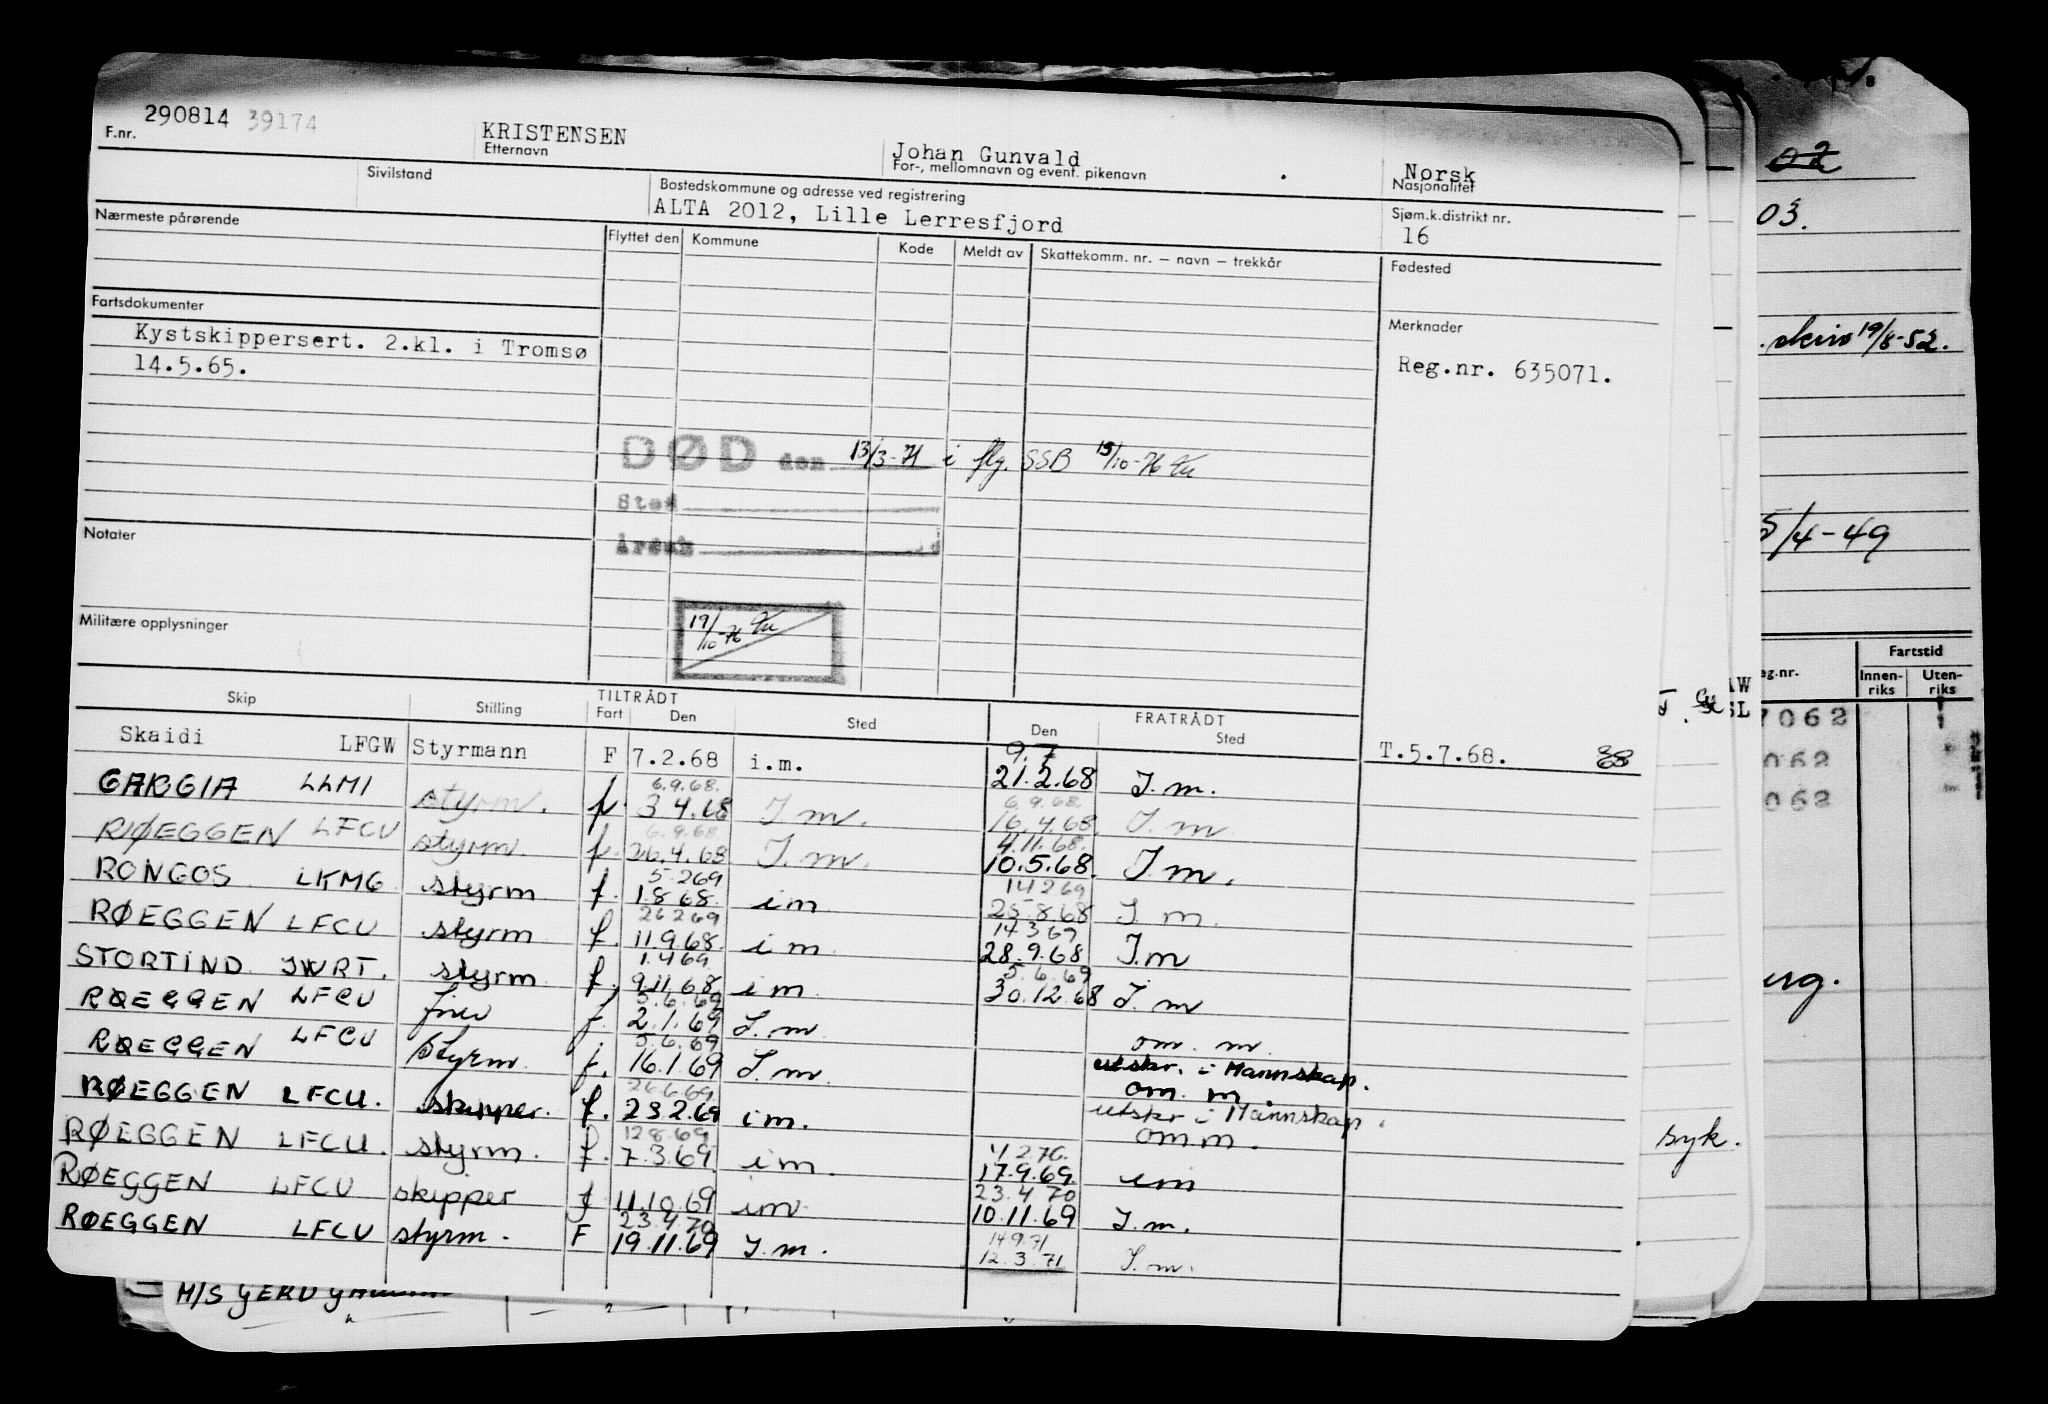 290814 39174
F.nr.
KRISTENSEN
Etternavn
Johan Gunvald
For-, mellomnavn og event. pikenavn
Norsk
Nasjonalitet
Sivilstand
Bostedskommune og adresse ved registrering
ALTA 2012, Lille Lerresfjord
Sjøm.k.distrikt nr.
16
Nærmeste pårørende
Flyttet den Kommune Kode Meldt av Skattekomm. nr. – navn – trekkår
Fødested
Fartsdokumenter
Kystskippersert. 2.kl. i Tromsø
14.5.65.
Merknader
Reg.nr. 635071.
DØD den 13/3-71 i flg. SSB 15/10-76
Sted
Årsak
Notater
Militære opplysninger
19/10-76
Skip Stilling TILTRÅDT Fart Den Sted FRATRÅDT Den Sted
Skaidi LFGW Styrmann F 7.2.68 i.m. 9.7 21.2.68 I.m. T.5.7.68.
6.9.68.
GARGIA LLMI styrm. f. 3.4.68 I m. 6.9.68. 16.4.68. I.m
6.9.68
RØEGGEN LFCU styrm. f. 26.4.68 I.m. 4.11.68. 10.5.68. I.m.
5.2.69
RONGOS LKMG styrm f. 1.8.68. im 14.2.69 25.8.68 I.m.
26.2.69
RØEGGEN LFCU styrm f. 11.9.68. im 14.3.69 28.9.68 I.m
1.4.69
STORTIND JWRT. styrm f. 9.11.68 im 5.6.69 30.12.68 I.m
5.6.69
RØEGGEN LFCU f. 2.1.69 I.m om. m.
5.6.69
RØEGGEN LFCU Styrm f. 16.1.69 I.m utskr. i Mannskap. om. m.
26.6.69
RØEGGEN LFCU. skipper. f. 23.2.69 im. utskr i Mannskap. om m.
12.8.69
RØEGGEN LFCU. styrm. f. 7.3.69. im. 4.2.70. 17.9.69 im
RØEGGEN LFCU skipper f 11.10.69 im 23.4.70 10.11.69 I.m.
23.4.70
RØEGGEN LFCU styrm. F 19.11.69 I.m. 14.9.71 12.3.71 I.m.
M/S GERD
02
03.
19/8-52.
5/4-49
Fartstid
eg.nr. Innen-riks Uten-riks
7062
062
062
syk.